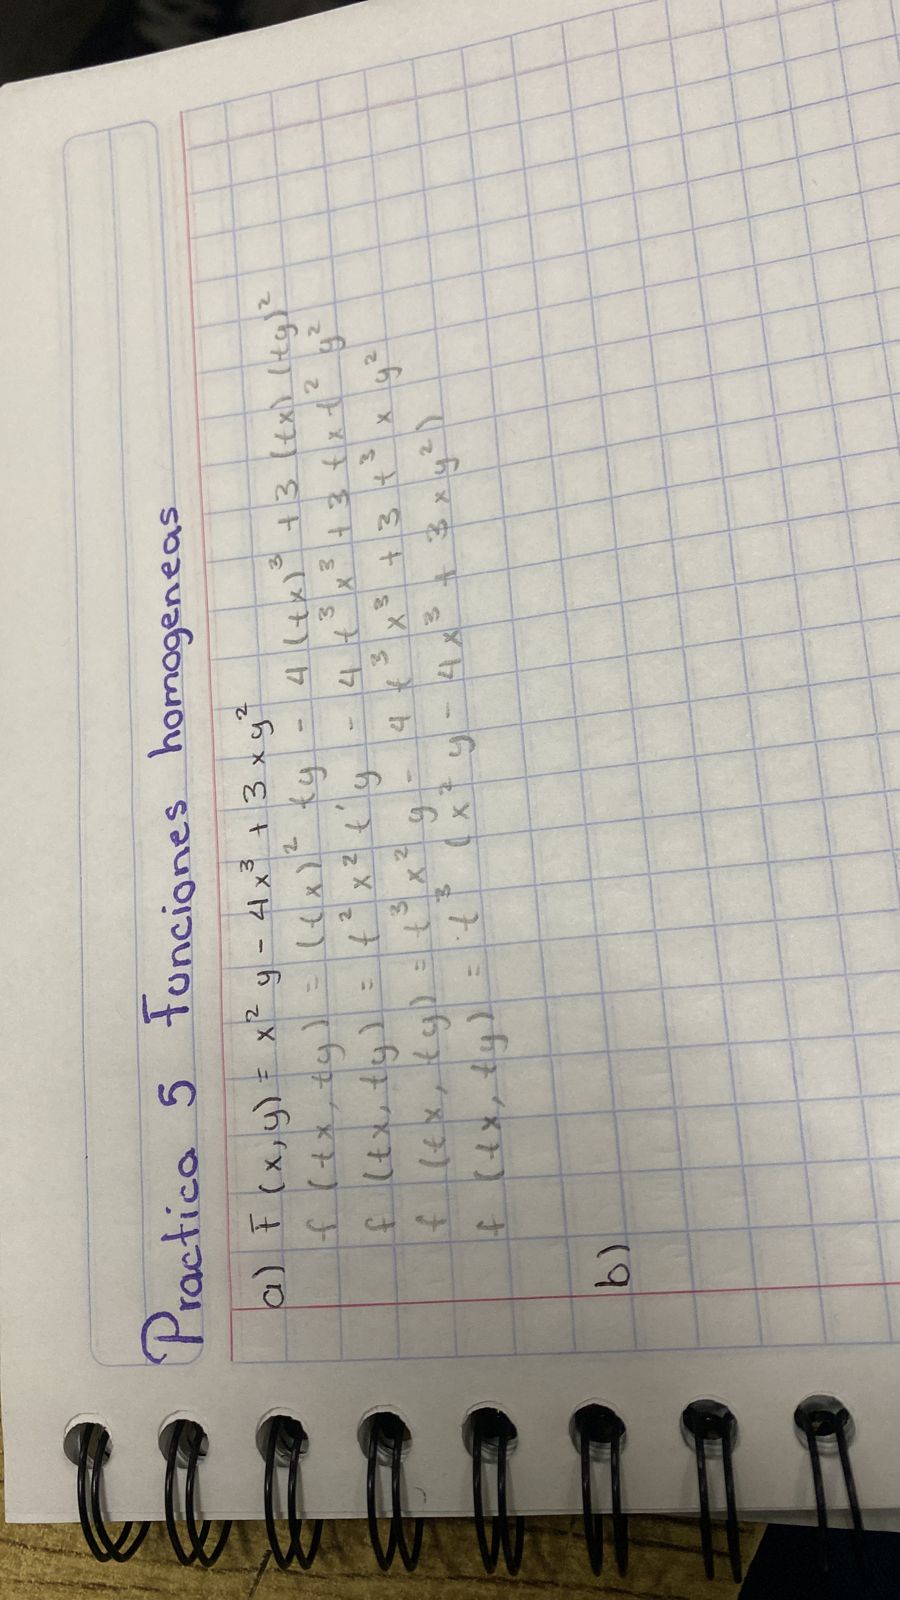 Practica 5 Funciones homogeneas
a) F (x,y) = x² y - 4x³ + 3xy²
f (tx, ty) = (tx)² ty - 4 (tx)³ + 3 (tx) (ty)²
f (tx, ty) = t² x² t' y - 4 t³ x³ + 3 t x t² y²
f (tx, ty) = t³ x² y - 4 t³ x³ + 3 t³ x y²
f (tx, ty) = t³ (x² y - 4x³ + 3xy²)
b)